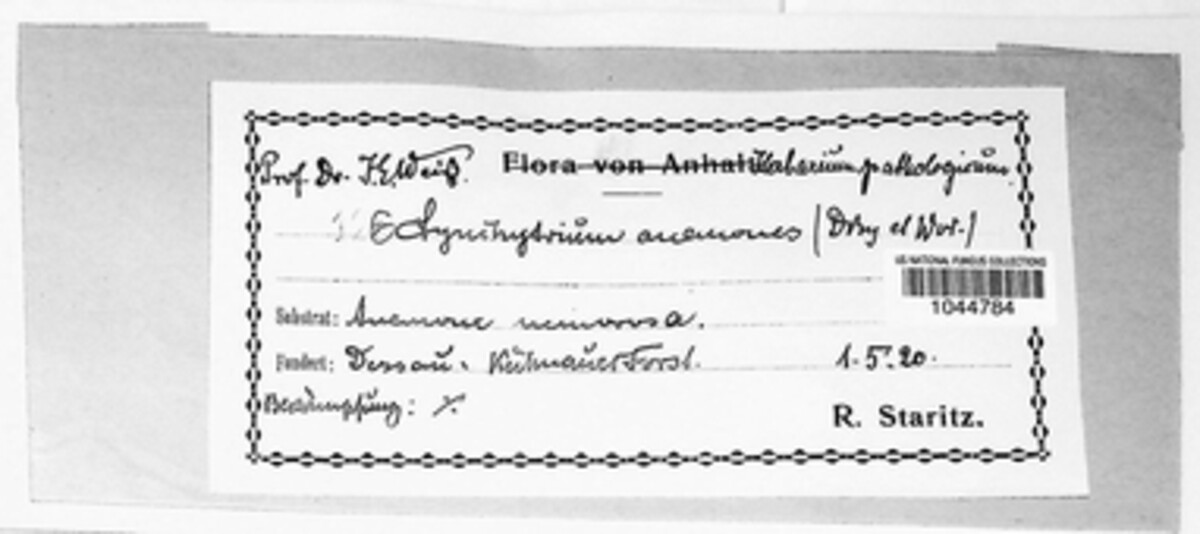 Prof. Dr. J. E. Weiß. Flora von Anhalt Herbarium pathologicum.
Synchytrium anemones (Dby et Wor.)
US NATIONAL FUNGUS COLLECTIONS
1044784
Substrat: Anemone nemorosa.
Fundort: Dessau. Kühnauer Forst. 1. 5. 20.
Bekämpfung: /.
R. Staritz.